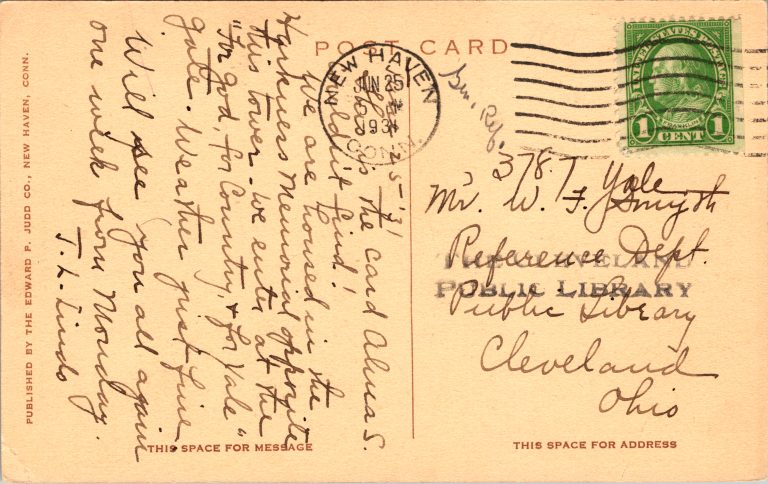 POST CARD
NEW HAVEN
JUN 25
1931
CONN.
UNITED STATES POSTAGE
FRANKLIN
1 CENT 1
Gen. Ref.
June 25 '31
Here is the card Alma S.
couldn't find!
We are housed in the
Harkness Memorial opposite
this tower - We enter at the
"For God, for Country, & for Yale"
gate. Weather just fine
Will see you all again
one week from Monday.
3787 Yale
Mr. W. F. Smyth
Reference Dept.
Public Library
Cleveland
Ohio
THE CLEVELAND
PUBLIC LIBRARY
THIS SPACE FOR MESSAGE
THIS SPACE FOR ADDRESS
PUBLISHED BY THE EDWARD P. JUDD CO., NEW HAVEN, CONN.